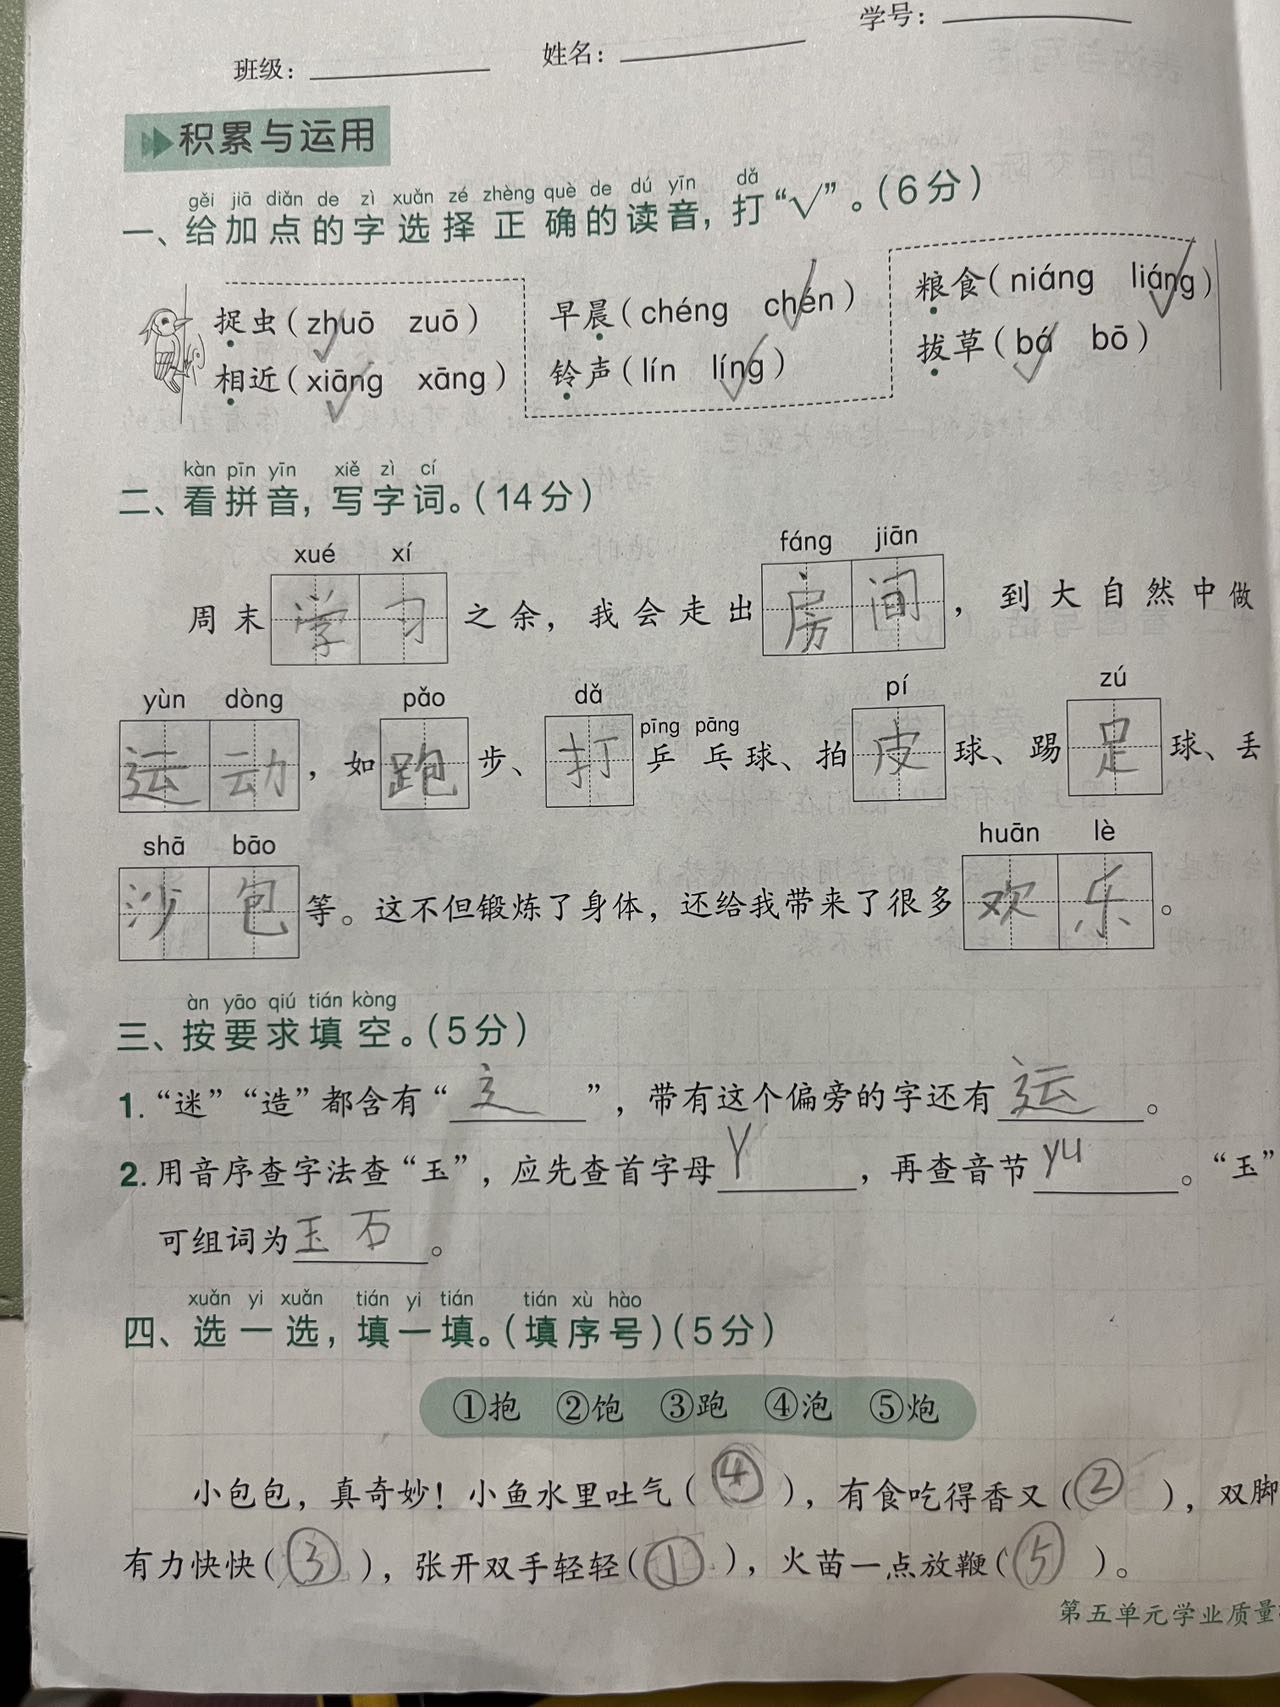 学号：
班级： 姓名：
积累与运用
gěi jiā diǎn de zì xuǎn zé zhèng què de dú yīn dǎ
一、给加点的字选择正确的读音，打“√”。（6分）
捉虫（zhuō zuō） 早晨（chéng chén） 粮食（niáng liáng）
相近（xiāng xāng） 铃声（lín líng） 拔草（bá bō）
kàn pīn yīn xiě zì cí
二、看拼音，写字词。（14分）
xué xí fáng jiān
周末学习之余，我会走出房间，到大自然中做
yùn dòng pǎo dǎ pīng pāng pí zú
运动，如跑步、打乒乓球、拍皮球、踢足球、丢
shā bāo huān lè
沙包等。这不但锻炼了身体，还给我带来了很多欢乐。
àn yāo qiú tián kòng
三、按要求填空。（5分）
1.“迷”“造”都含有“辶”，带有这个偏旁的字还有运。
2.用音序查字法查“玉”，应先查首字母Y，再查音节yu。“玉”
可组词为玉石。
xuǎn yi xuǎn tián yi tián tián xù hào
四、选一选，填一填。（填序号）（5分）
①抱 ②饱 ③跑 ④泡 ⑤炮
小包包，真奇妙！小鱼水里吐气（④），有食吃得香又（②），双脚
有力快快（③），张开双手轻轻（①），火苗一点放鞭（⑤）。
第五单元学业质量